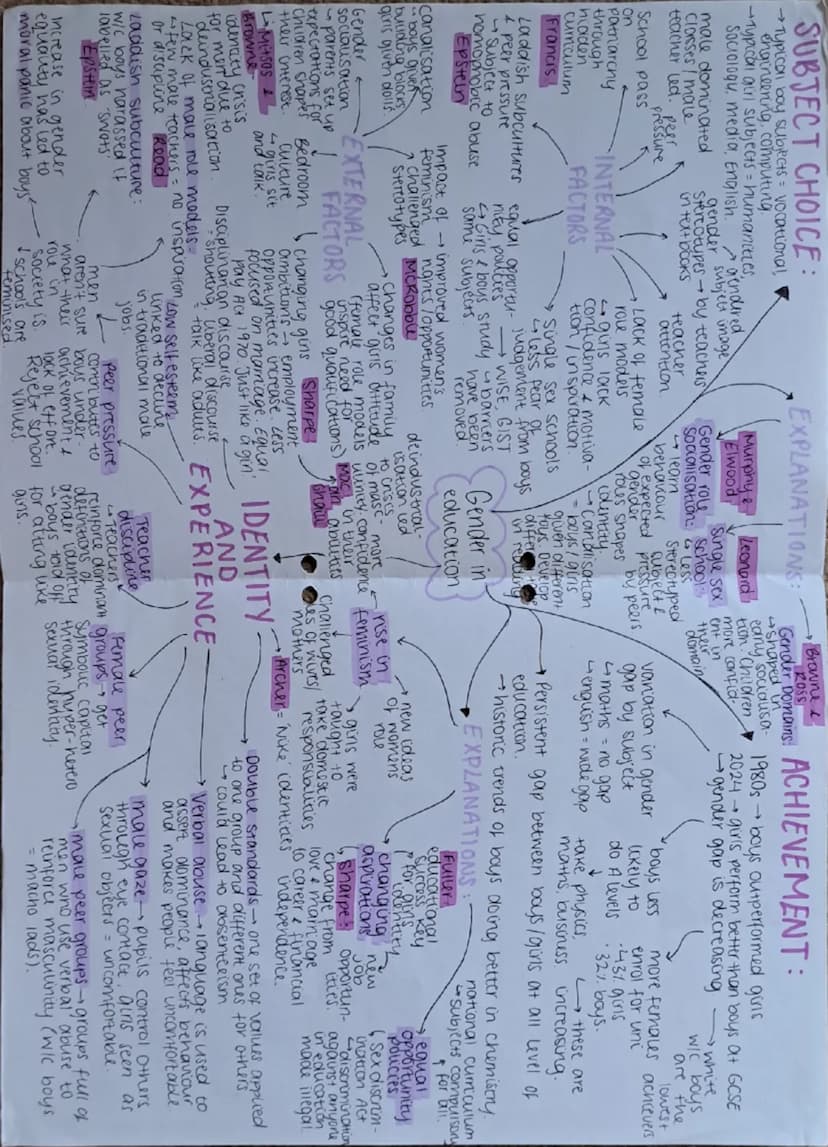 Gender in
education
SUBJECT CHOICE:
→ Typical boy subjects = vocational,
engineering, computing.
→ Typical girl subjects = humanities,
sociology, media, English.
gendered
subject image
gender
stereotypes → by teachers
in textbooks
male dominated
classes / male
teacher led.
peer
pressure
teacher
attention.
School pass
on
patriarchy
through
hidden
curriculum
INTERNAL
FACTORS
Lack of female
role models
↳ girls lack
confidence & motiva-
tion / inspiration.
Francis
Laddish subcultures
& peer pressure
↳ subject to
homophobic abuse
Epstein
Single sex schools
↳ less fear of
judgement from boys
equal opportu-
nity policies → WISE, GIST
↳ Girls & boys study
same subjects.
↳ barriers
have been
removed
EXPLANATIONS:
Murphy &
Elwood
Gender role
socialisation:
↳ learn
behaviour
of expected
gender
roles shapes
identity
→ Canalisation
= boys / girls
given different
toys develop
different
Leonard
single sex
schools:
↳ less
stereotyped
subject &
pressure
by peers
Browne &
Ross
Gender Domains:
→ shaped in
early socialisa-
tion. Children
more confid-
ent in
their
domain
EXTERNAL
FACTORS
Canalisation
↳ boys given
building blocks
girls given dolls.
Gender
socialisation
↳ parents set up
expectations for
children shapes
their interest.
Bedroom
culture
↳ girls sit
and talk.
Impact of → improved women's
feminism rights/opportunities
↳ challenged
stereotypes
McRobbie
↳ changes in family
affect girls attitude
(female role models
inspire need for
good qualifications)
↳ changing girls
ambitions → employment
opportunities increase, less
focused on marriage. Equal
Pay Act 1970
Sharpe
deindustrial-
isation led
to crisis
of masc-
ulinity
Mac
an
Ghaill
more
confidence
in their
abilities
Mitsos &
Browne
identity crisis
for men due to
deindustrialisation.
Lack of male role models =
↳ few male teachers = no inspiration
or discipline
Read
Disciplinarian discourse
= shouting. Liberal discourse
= talk like adults.
just like a girl.
Low self esteem
linked to decline
in traditional male
jobs
Laddism subculture:
w/c boys harassed if
labelled as 'swots'
Epstein
men
aren't sure
what their
role in
society is.
Increase in gender
equality has led to
moral panic about boys
& schools are
feminised.
Peer pressure
contributes to
boys under-
achievement &
lack of effort.
Reject school
values
IDENTITY
AND
EXPERIENCE
Teacher
discipline
→ Teachers
reinforce dominant
definitions of
gender identity
↳ boys told off
for acting like
girls.
Female peer
groups → get
symbolic capital
through hyper-hetero
sexual identity.
male peer groups → groups full of
men who use verbal abuse to
reinforce masculinity (w/c boys
= macho lads).
male gaze → pupils control others
through eye contact. Girls seen as
sexual objects = uncomfortable.
Verbal abuse → language is used to
assert dominance affects behaviour
and makes people feel uncomfortable
Double standards → one set of values applied
to one group and different ones for others
↳ could lead to absenteeism
Archer = 'Nike' identities
ACHIEVEMENT:
1980s → boys outperformed girls
2024 → girls perform better than boys at GCSE
↳ gender gap is decreasing → white
w/c boys
are the
lowest
achievers
Variation in gender
gap by subject
↳ maths = no gap
↳ english = wide gap
boys less
likely to
do A levels
more females
enrol for uni
· 43% girls
· 32% boys.
take physics,
maths business
↳ these are
increasing.
Persistent gap between boys / girls at all level of
education.
→ historic trends of boys doing better in chemistry.
EXPLANATIONS:
rise in
feminism
→ new ideas
of womens
role
challenged
roles of wives /
mothers
girls were
taught to
take domestic
responsibilities
Fuller
educational
success key
for girls
identity
changing
aspirations
new
job
opportun-
ities.
Sharpe:
change from
love & marriage
to career & financial
independence.
national curriculum
↳ subjects compulsory
for all.
equal
opportunity
policies
↳ Sex discrim-
ination Act
↳ discrimination
against anyone
in education
made illegal.